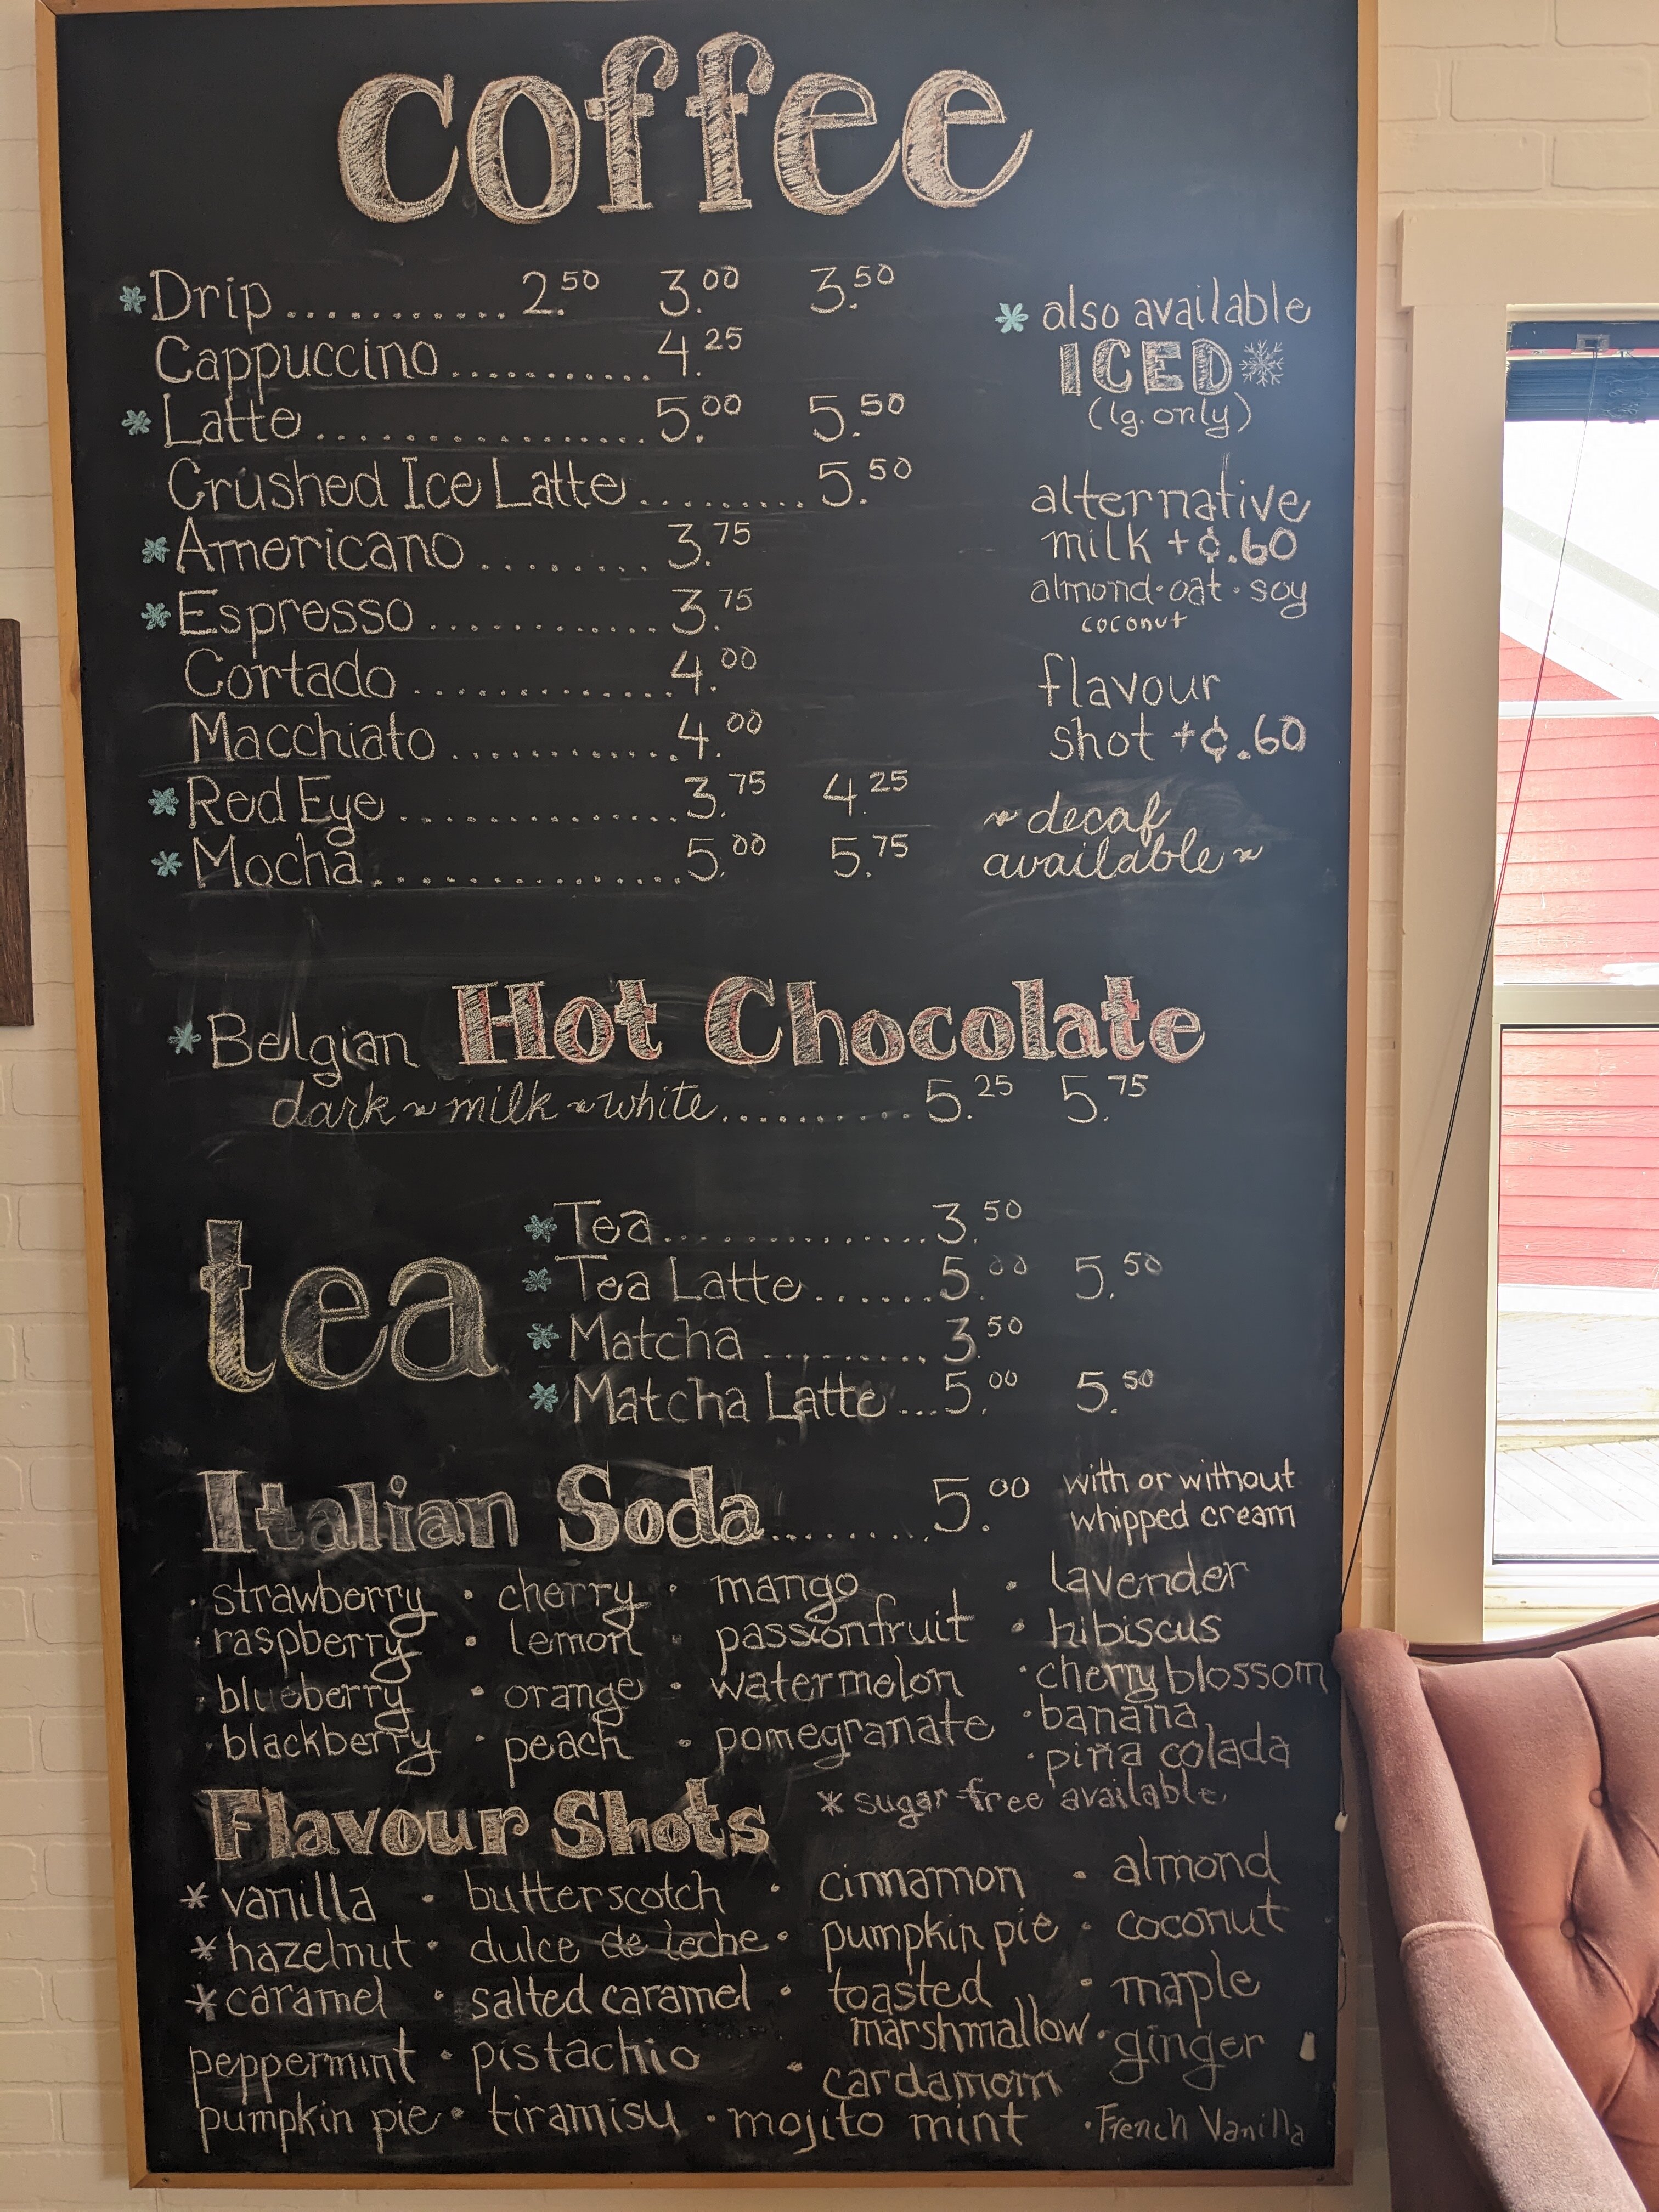 coffee
* Drip............ 2.50 3.00 3.50
Cappuccino........... 4.25
* Latte................. 5.00 5.50
Crushed Ice Latte......... 5.50
* Americano......... 3.75
* Espresso............ 3.75
Cortado............. 4.00
Macchiato........... 4.00
* Red Eye............... 3.75 4.25
* Mocha................ 5.00 5.75
* also available
ICED
(lg. only)
alternative
milk +¢.60
almond·oat·soy
coconut
flavour
shot +¢.60
~ decaf
available ~
* Belgian Hot Chocolate
dark ~ milk ~ white.......... 5.25 5.75
tea
* Tea.............. 3.50
* Tea Latte....... 5.00 5.50
* Matcha......... 3.50
* Matcha Latte... 5.00 5.50
Italian Soda......... 5.00 with or without
whipped cream
· strawberry · cherry · mango · lavender
· raspberry · lemon · passionfruit · hibiscus
· blueberry · orange · watermelon · cherry blossom
· blackberry · peach · pomegranate · banana
· piña colada
Flavour Shots * sugar-free available
* vanilla · butterscotch · cinnamon · almond
* hazelnut · dulce de leche · pumpkin pie · coconut
* caramel · salted caramel · toasted · maple
marshmallow · ginger
peppermint · pistachio · cardamom
pumpkin pie · tiramisu · mojito mint · French Vanilla